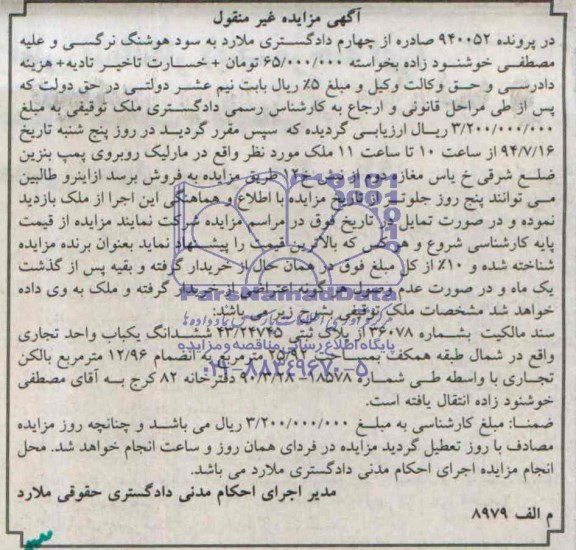 آگهی مزایده غیر منقول
در پرونده ۹۴۰۰۵۲ صادره از چهارم دادگستری ملارد به سود هوشنگ نرگسی و علیه
مصطفی خوشنود زاده بخواسته ۶۵/۰۰۰/۰۰۰ تومان + خسارت تاخیر تادیه+ هزینه
دادرسی و حق وکالت وکیل و مبلغ ۵٪ ریال بابت نیم عشر دولتی در حق دولت که
پس از طی مراحل قانونی و ارجاع به کارشناس رسمی دادگستری ملک توقیفی به مبلغ
۳/۲۰۰/۰۰۰/۰۰۰ ریال ارزیابی گردیده که سپس مقرر گردید در روز پنج شنبه تاریخ
۹۴/۷/۱۶ از ساعت ۱۰ تا ساعت ۱۱ ملک مورد نظر واقع در مارلیک روبروی پمپ بنزین
ضلع شرقی خ یاس مغازه دوم از نبش خ۱۲ طریق مزایده به فروش برسد ازاینرو طالبین
می توانند پنج روز جلوتر از تاریخ مزایده با اطلاع و هماهنگی این اجرا از ملک بازدید
نموده و در صورت تمایل در تاریخ فوق در مراسم مزایده شرکت نمایند مزایده از قیمت
پایه کارشناسی شروع و هر کس که بالاترین قیمت را پیشنهاد نماید بعنوان برنده مزایده
شناخته شده و ۱۰٪ از کل مبلغ فوق در همان حال از خریدار گرفته و بقیه پس از گذشت
یک ماه و در صورت عدم وصول هرگونه اعتراضی از خریدار گرفته و ملک به وی داده
خواهد شد مشخصات ملک توقیفی بشرح زیر می باشد:
سند مالکیت بشماره ۳۶۰۷۸ از پلاک ثبتی ۴۳/۲۴۷۴۵ ششدانگ یکباب واحد تجاری
واقع در شمال طبقه همکف بمساحت ۲۵/۹۲ مترمربع به انضمام ۱۲/۹۶ مترمربع بالکن
تجاری با واسطه طی شماره ۱۸۵۷۸- ۹۰/۳/۲۸ دفترخانه ۸۲ کرج به آقای مصطفی
خوشنود زاده انتقال یافته است.
ضمنا: مبلغ کارشناسی به مبلغ ۳/۲۰۰/۰۰۰/۰۰۰ ریال می باشد و چنانچه روز مزایده
مصادف با روز تعطیل گردید مزایده در فردای همان روز و ساعت انجام خواهد شد. محل
انجام مزایده اجرای احکام مدنی دادگستری ملارد می باشد.
مدیر اجرای احکام مدنی دادگستری حقوقی ملارد
م الف ۸۹۷۹
ParsNamadData
پایگاه اطلاع رسانی مناقصه و مزایده
۰۲۱-۸۸۳۴۹۶۷۰-۵